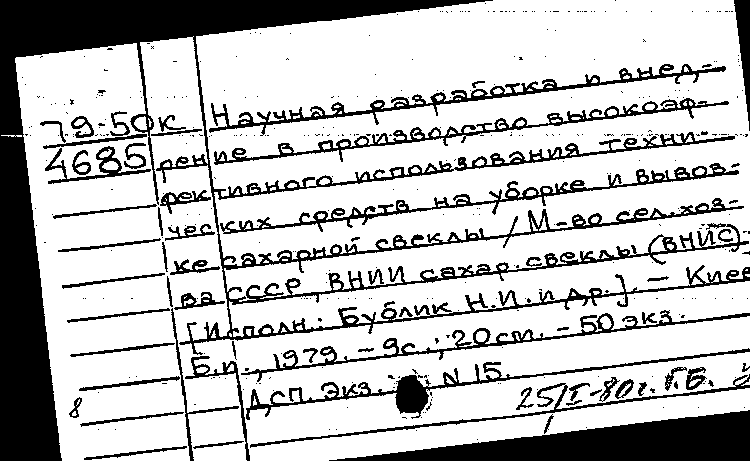 79-50к Научная разработка и внед-
4685 рение в производство высокоэф-
фективного использования техни-
ческих средств на уборке и вывоз-
ке сахарной свеклы / М-во сел.хоз-
ва СССР, ВНИИ сахар.свеклы (ВНИС)
[Исполн.: Бублик Н.И. и др.]. — Киев
Б.и., 1979. - 9с.; 20см. - 50 экз.
ДСП. Экз. N 15.
8
25/I-80г. Г.Б.